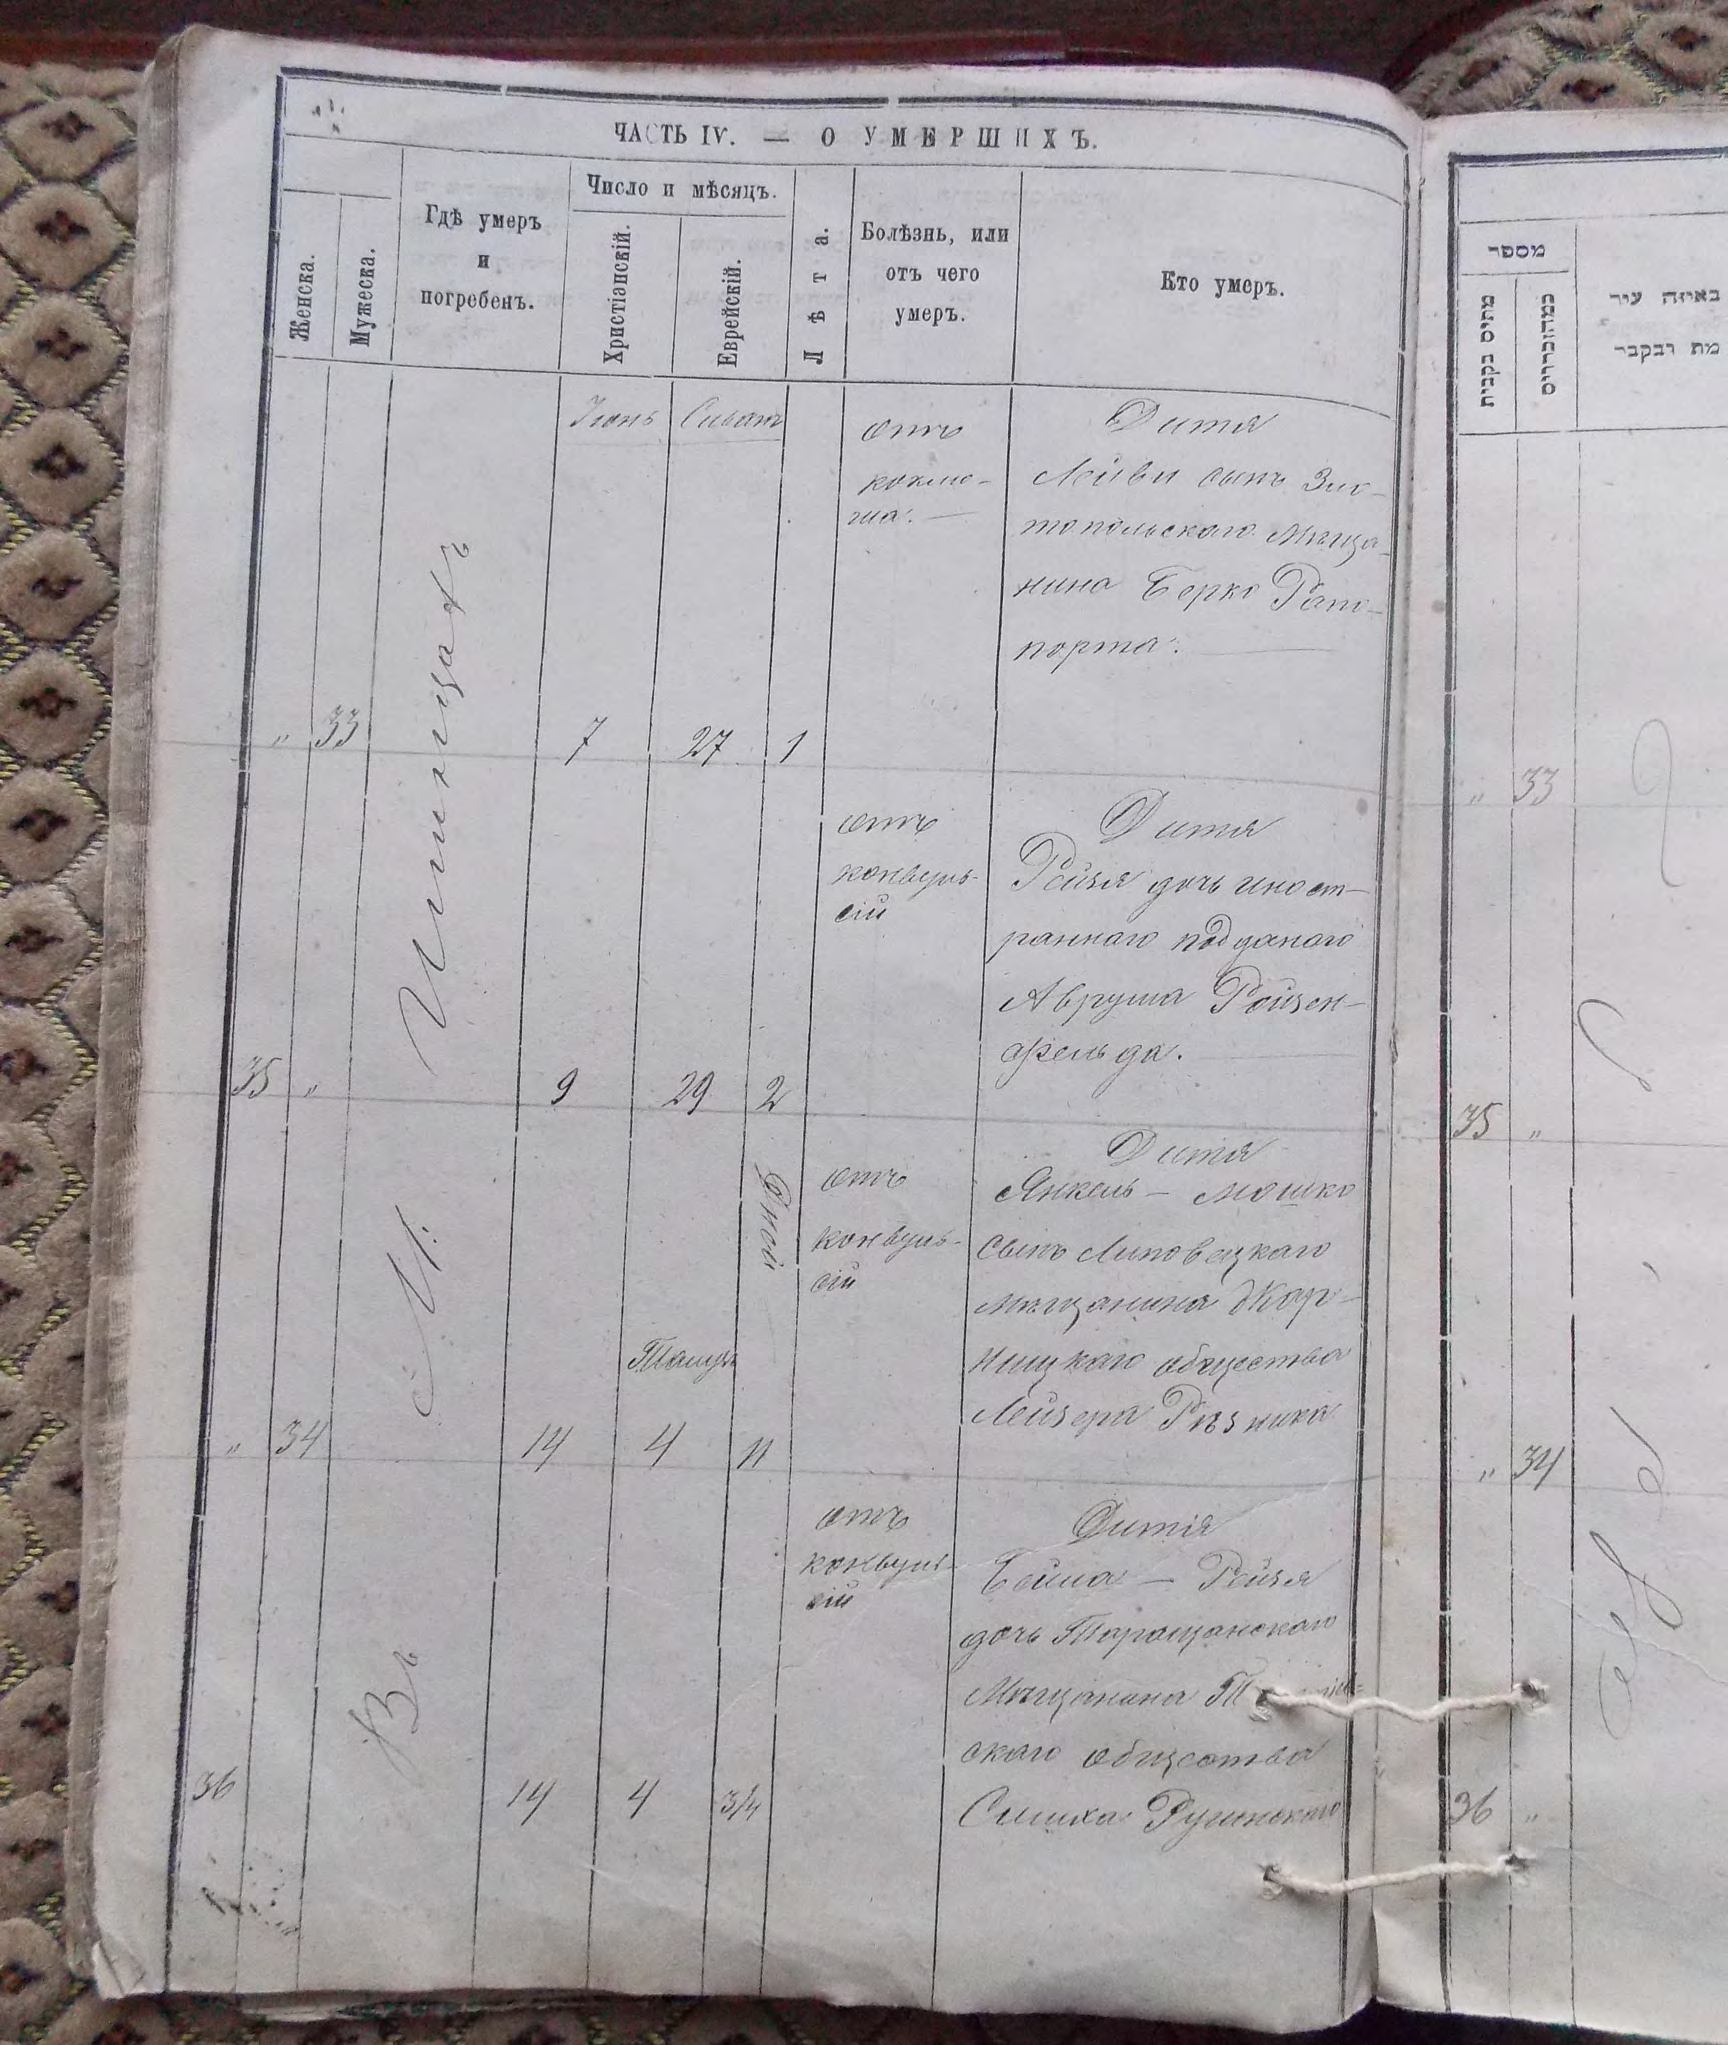 ЧАСТЬ IV. — О УМЕРШИХЪ.
Женска.
Мужеска.
Гдѣ умеръ
и
погребенъ.
Число и мѣсяцъ.
Христіанскій.
Еврейскій.
Лѣта.
Болѣзнь, или
отъ чего
умеръ.
Кто умеръ.
Въ М. Ильинцахъ
Іюнь Сиванъ
отъ
коклю-
ша. —
Дитя
Лейви сынъ Зло-
топольскаго Мѣща-
нина Берко Рапо-
порта.
" 33 7 27 1
отъ
конвуль-
сій
Дитя
Рейзя дочь иност-
раннаго подданаго
Аврума Ройзен-
фельда.
35 " 9 29 2
Дней
отъ
конвуль-
сій
Дитя
Янкель - Мошко
сынъ Липовецкаго
Мѣщанина
ницкаго общества
Лейзера Рѣзника
Тамузъ
" 34 14 4 11
отъ
конвуль-
сій
Дитя
Бейла - Рейзя
дочь Таращанскаго
Мѣщанина
скаго общества
Симха Ружинскаго
36 14 4 3/4
מספר
מתים נקבות
באיזה עיר
מת ונקבר
" 33
35 "
" 34
36 "